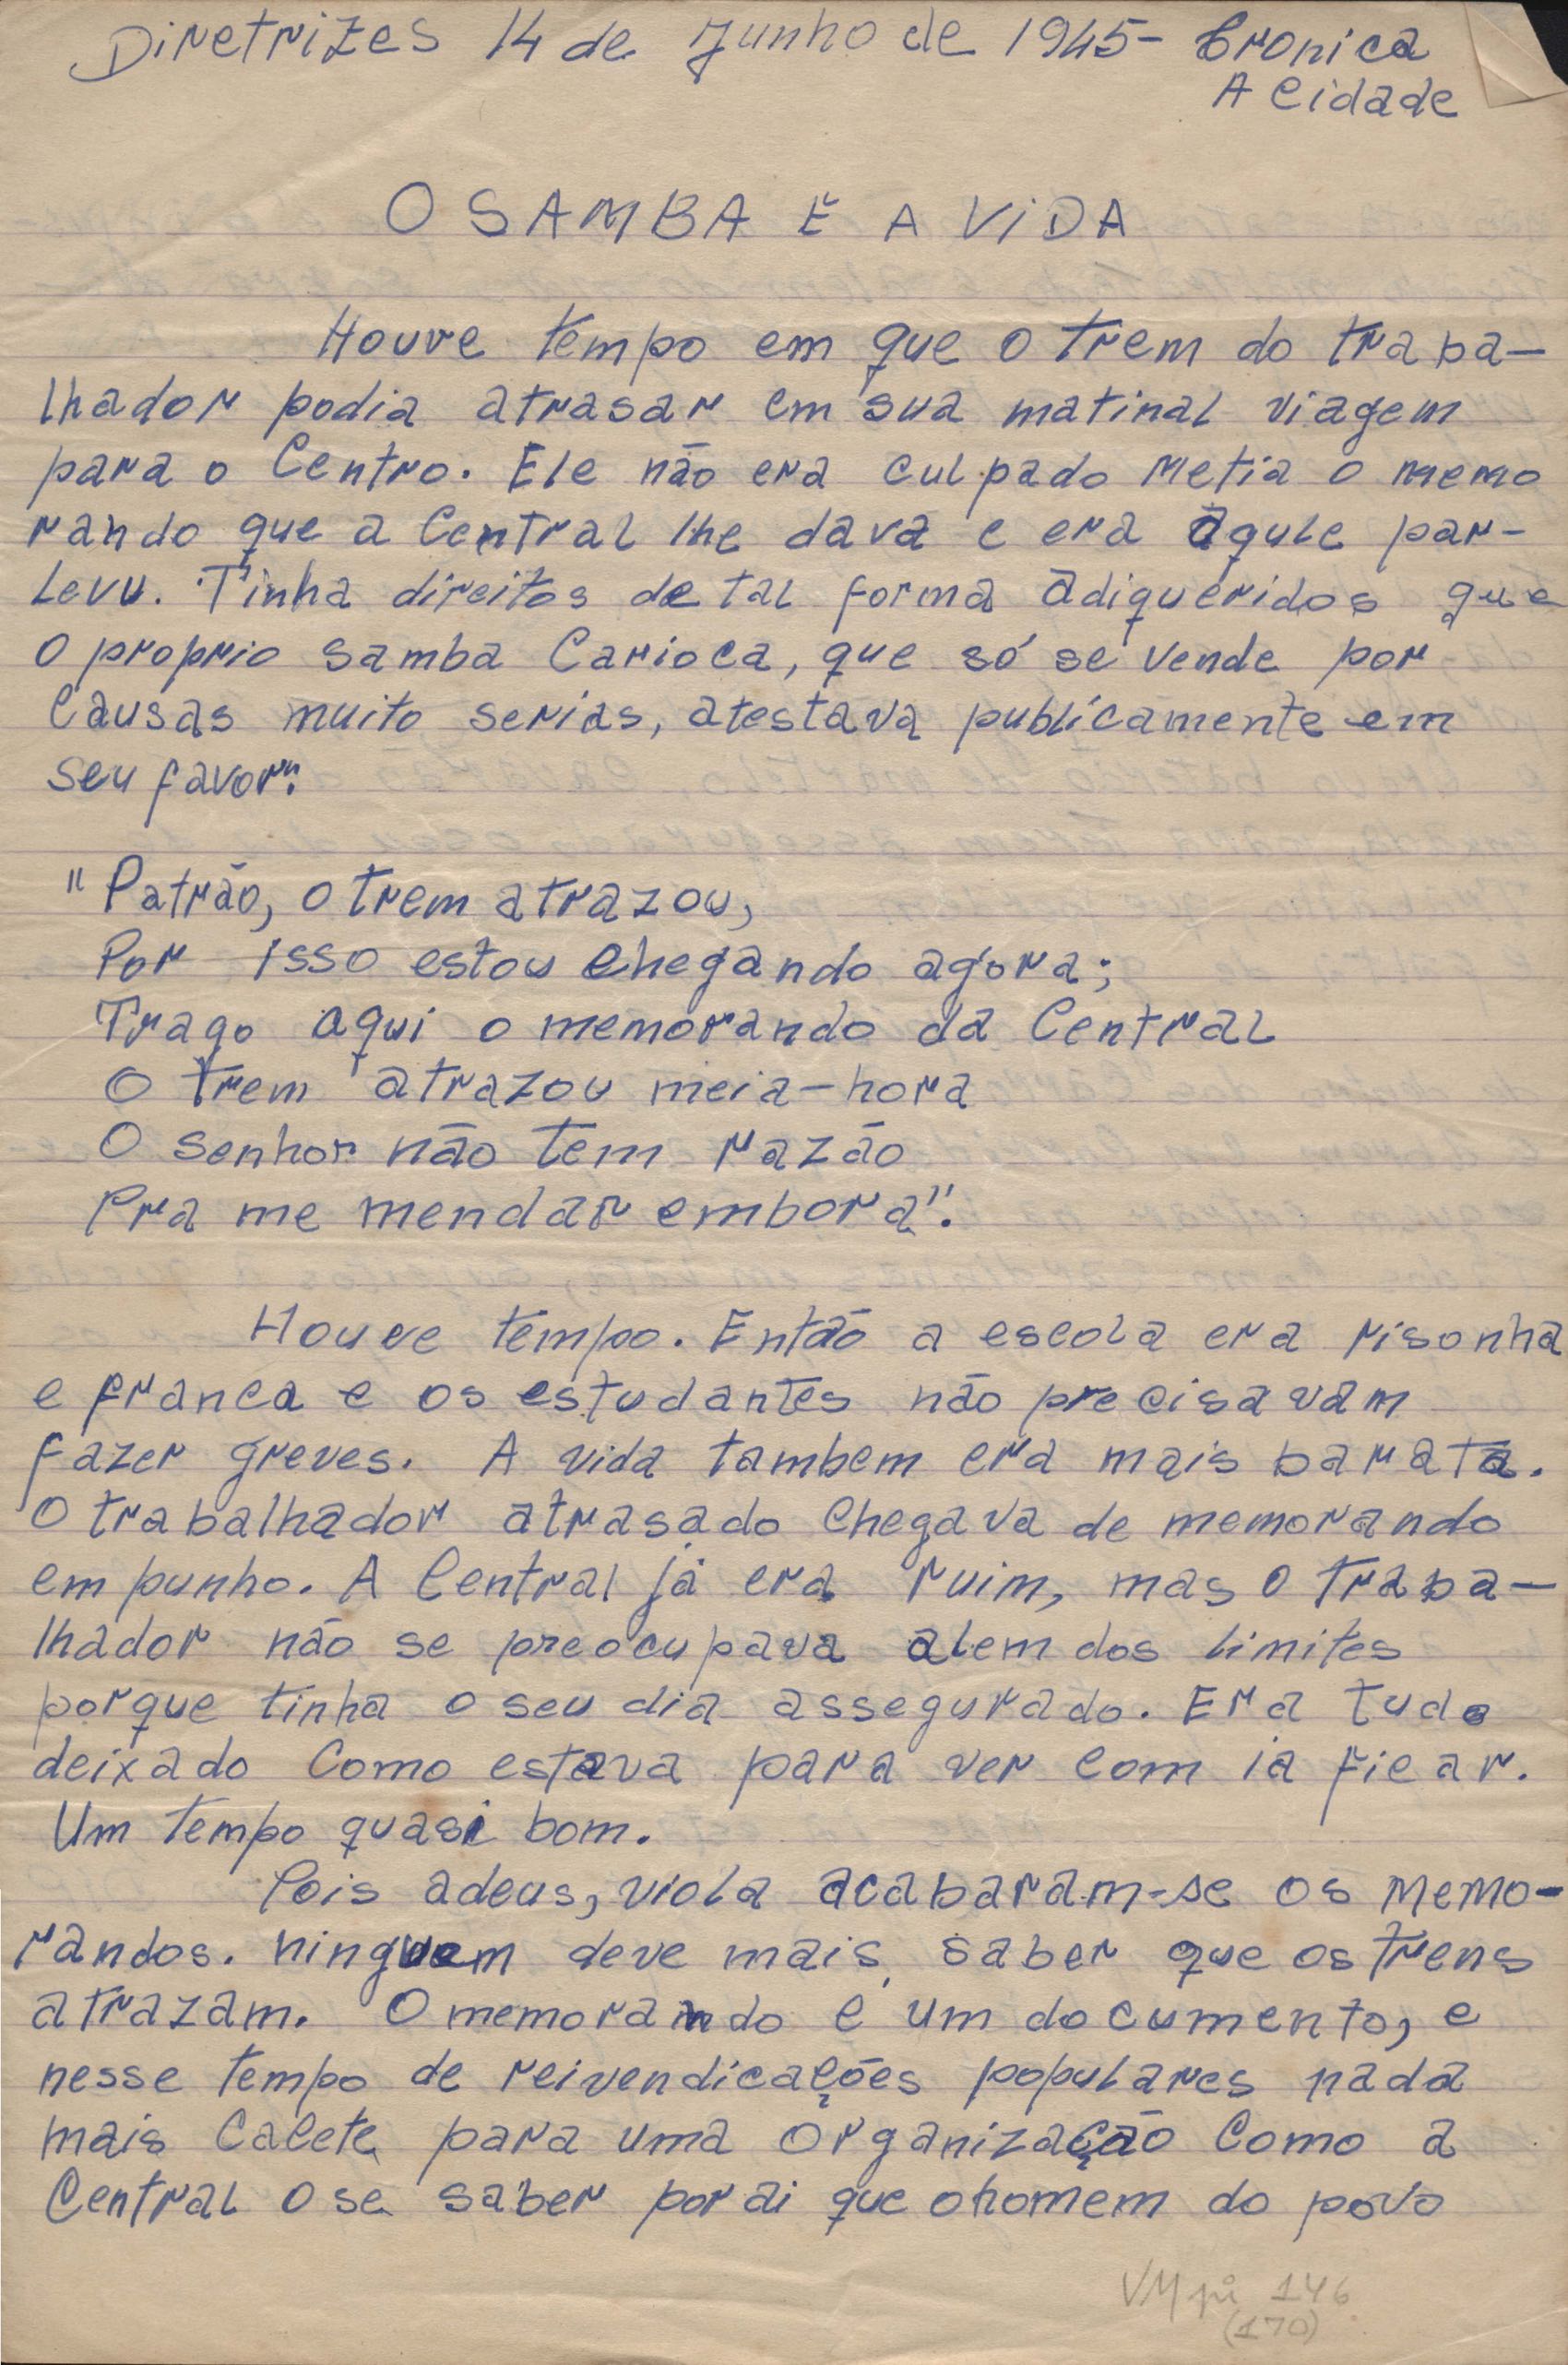 Diretrizes 14 de Junho de 1945- Cronica
A Cidade
O SAMBA E A VIDA
Houve tempo em que o trem do traba-
lhador podia atrasar em sua matinal viagem
para o Centro. Ele não era culpado Metia o memo
rando que a Central lhe dava e era aqule par-
levu. Tinha direitos de tal forma adiqueridos que
o proprio samba Carioca, que só se vende por
Causas muito serias, atestava publicamente em
seu favor:
"Patrão, o trem atrazou,
Por isso estou chegando agora;
Trago aqui o memorando da Central
O trem atrazou meia-hora
O senhor não tem razão
Pra me mendar embora".
Houve tempo. Então a escola era risonha
e franca e os estudantes não precisavam
fazer greves. A vida tambem era mais barata.
O trabalhador atrasado chegava de memorando
em punho. A Central já era ruim, mas o traba-
lhador não se preocupava alem dos limites
porque tinha o seu dia assegurado. Era tudo
deixado como estava para ver com ia ficar.
Um tempo quasi bom.
Pois adeus, viola acabaram-se os memo-
randos. ninguem deve mais saber que os trens
atrazam. O memorando é um documento, e
nesse tempo de reivendicações populares nada
mais Cacete para uma organização como a
Central o se saber por ai que o homem do povo
VMpi 146
(170)